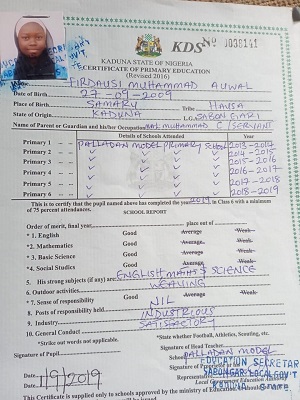 KDS No 0036141
KADUNA STATE OF NIGERIA
CERTIFICATE OF PRIMARY EDUCATION
(Revised 2016)
FIRDAUSI MUHAMMAD AUWAL
Date of Birth 27-09-2009
Place of Birth SAMARU Tribe HAUSA
State of Origin KADUNA L.G. SABON GARI
Name of Parent or Guardian and his/her Occupation MUHAMMAD C/SERVANT
Details of Schools Attended Year
Primary 1 PALLADAN MODEL PRIMARY SCHOOL 2013-2014
Primary 2 ✓ ✓ ✓ ✓ 2014-2015
Primary 3 ✓ ✓ ✓ ✓ 2015-2016
Primary 4 ✓ ✓ ✓ ✓ 2016-2017
Primary 5 ✓ ✓ ✓ ✓ 2017-2018
Primary 6 ✓ ✓ ✓ ✓ 2018-2019
This is to certify that the pupil named above has completed the year 2019 in Class 6 with a minimum
of 75 percent attendances.
SCHOOL REPORT
Order of merit, final year, place out of
* 1. English Good Average Weak
*2. Mathematics Good Average Weak
*3. Basic Science Good Average Weak
*4. Social Studies Good Average Weak
5. His strong subjects (if any) are: ENGLISH MATHS & SCIENCE
6. Outdoor activities WEAVING
*7. Sense of responsibility Good Average Weak
8. Posts of responsibility held NIL
9. Industry INDUSTRIOUS
10. General Conduct SATISFACTORY
*Strike out words not applicable. *State whether Football, Athletics, Scouting, etc.
Signature of Pupil Signature of Head Teacher
School PALLADAN MODEL
Signature of
EDUCATION SECRETARY
Representative
SABONGARI LOCAL GOVT
Local Government Education Authority
Date 1/9/2019 Date
This Certificate is supplied only to schools approved by the ministry of Education,